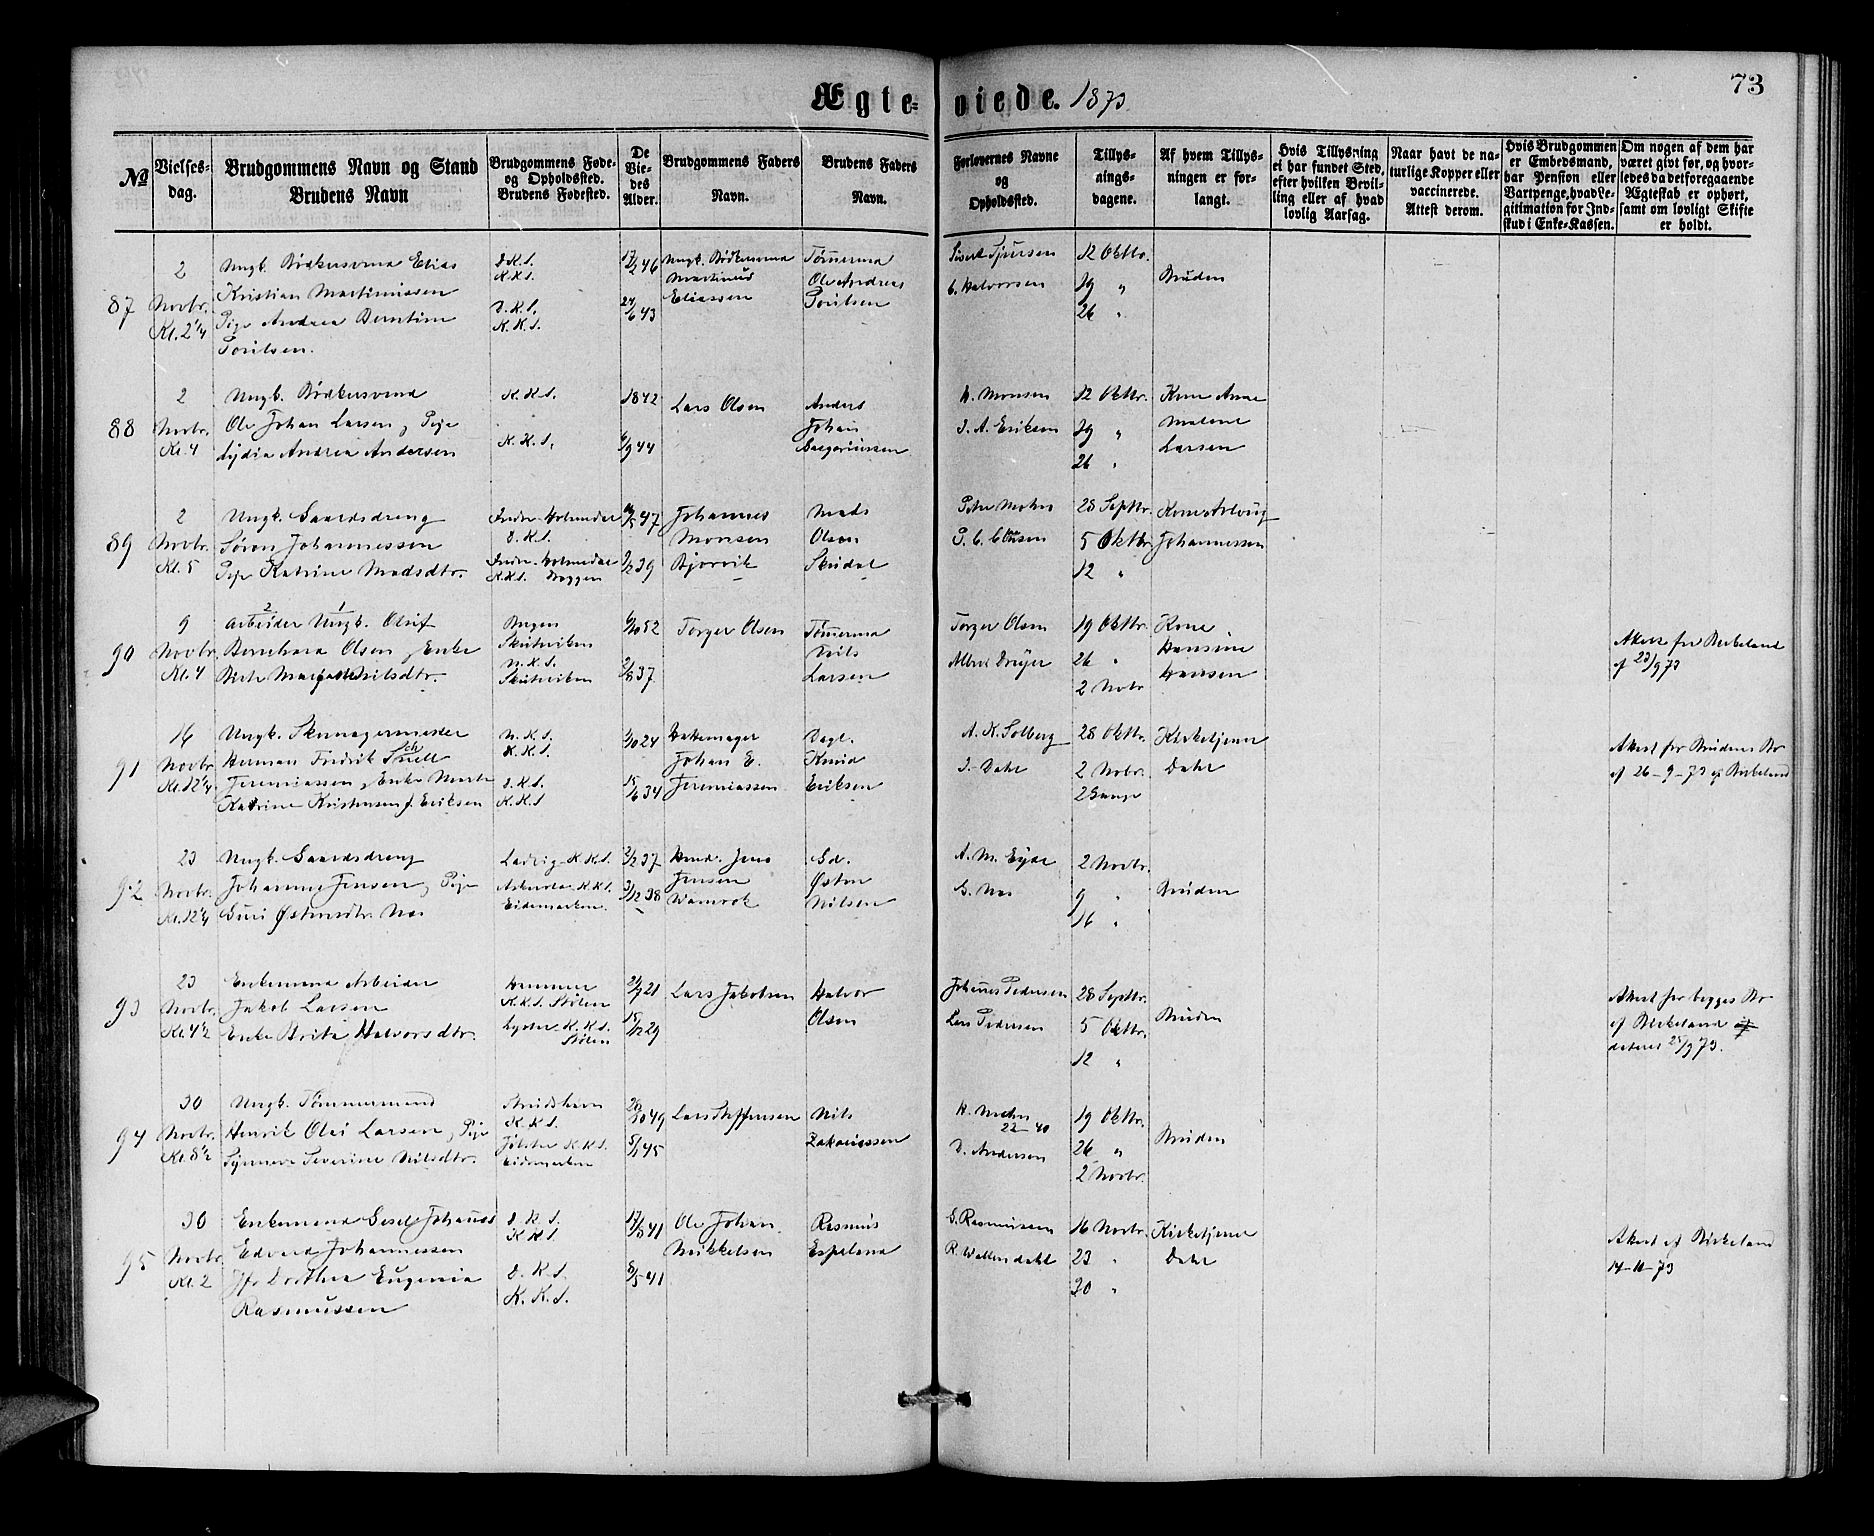 Ægteviede. 1873
73
№
Vielses-
dag.
Brudgommens Navn og Stand
Brudens Navn
Brudgommens Føde-
og Opholdssted.
Brudens Fødested.
De
Vie-
des
Alder.
Brudgommens Faders
Navn.
Brudens Faders
Navn.
Forlovernes Navne
og
Opholdssted.
Tillys-
nings-
dagene.
Af hvem Tillys-
ningen er for-
langt.
Hvis Tillysning
ei har fundet Sted,
efter hvilken Bevil-
ling eller af hvad
lovlig Aarsag.
Naar havt de na-
turlige Kopper eller
vaccinerede.
Attest derom.
Hvis Brudgommen
er Embedsmand,
har Pension eller
Vartpenge, hvad Le-
gitimation for Ind-
skud i Enke-Kassen.
Om nogen af dem har
været givt før, og hvor-
ledes da det foregaaende
Ægteskab er ophørt,
samt om lovligt Skifte
er holdt.
87
2
Novbr.
Kl. 2 1/4
Ungk. Bødkersvend Elias
Kristian Martiniussen
Pige Andrea Berntine
D.K.S.
K.K.S.
D.K.S.
K.K.S.
24/6 43
Ungk. Bødkersvend
Martinius
Eliassen
Tømmermd
Ole Andreas
Sivert Sjursen
C. Halvorsen
12 Oktbr.
19 "
26 "
Bruden
88
2
Novbr.
Kl. 4
Ungk. Bødkersvend
Ole Johan Larsen, Pige
Lydia Andrea Andersen
K.K.S.
K.K.S.
1842
6/9 44
Lars Olsen
Anders
Johan
H. Monsen
J. A. Eriksen
12 Oktbr.
19 "
26 "
Kone Anne
Malene
Larsen
89
2
Novbr.
Kl. 5
Ungk. Gaardsdreng
Søren Johannessen
Pige Katrine Madsdtr.
Indre Holmedal
D.K.S.
Indre Holmedal
K.K.S. Nøggen
Johannes
Monsen
Bjørvik
Mads
Olsen
Skidal
Peter Mohn
P. C. Clausen
28 Septbr.
5 Oktbr.
12 "
Johannessen
90
9
Novbr.
Kl. 4
Arbeider Ungk. Oluf
Bernhard Olsen, Enke
Birte Margrethe Nilsdtr.
Bergen
Skutviken
N.K.S.
Skutviken
6/10 52
2/8 37
Torger Olsen
Tømmermd
Nils
Larsen
Torger Olsen
Albert Dreyer
19 Oktbr.
26 "
2 Novbr
Kone
Hansine
Hansen
Attest fra Birkeland
af 23/9 73
91
16
Novbr.
Kl. 12 1/4
Ungk. Skomagermester
Herman Fredrik Schnell
Jeremiassen, Enke Marte
Katrine Kristensen f. Eriksen
N.K.S.
K.K.S.
D.K.S.
K.K.S
15/6 34
Hattemager
Johan E.
Jeremiassen
Dagl.
Knud
Eriksen
A. K. Solberg
J. Dahl
28 Oktbr.
2 Novbr.
2 Gange
Kirketjener
Dahl
Attest for Brudens Vr.
af 26-9-73 af Birkeland
92
23
Novbr.
Kl. 12 1/4
Ungk. Gaardsdreng
Johannes Jensen, Pige
Guri Østensdtr. Næs
K.K.S.
K.K.S.
Eidemarken
2/12 37
3/12 38
Hmd. Jens
Jensen
Gd.
Østen
Nilsen
A. M. Eyde
G. Næs
2 Novbr.
9 "
16 "
Bruden
93
23
Novbr.
Kl. 4 1/2
Enkemand Arbeider
Jakob Larsen
Enke Brite Halvorsdtr.
Hammer
K.K.S. Stølen
Lyster K.K.S.
Stølen
15/12 29
Lars Jakobsen
Halvor
Olsen
Johannes Pedersen
Lars Pedersen
28 Septbr.
5 Oktbr.
12 "
Bruden
Attest for begges Vr.
af Birkeland
dateret 25/9 73.
94
30
Novbr.
Kl. 8 1/2
Ungk. Tømmermand
Henrik Olai Larsen, Pige
Synneve Severine Nilsdtr.
K.K.S.
Jølster K.K.S.
Eidemarken
28/10 49
5/1 45
Lars Steffensen
Nils
Zakariassen
H. Mohn
22-40
D. Andersen
19 Oktbr.
26 "
2 Novbr.
Bruden
95
30
Novbr.
Kl. 2
Enkemand Gesel Johannes
Edvard Johannessen
Jfr. Dorthea Eugenia
Rasmussen
D.K.S.
K.K.S.
D.K.S.
K.K.S.
8/5 41
Ole Johan
Mikkelsen
Rasmus
Espeland
G. Rasmussen
R. Wallendahl
16 Novbr.
23 "
30 "
Kirketjener
Dahl
Attest af Birkeland
14-11-73